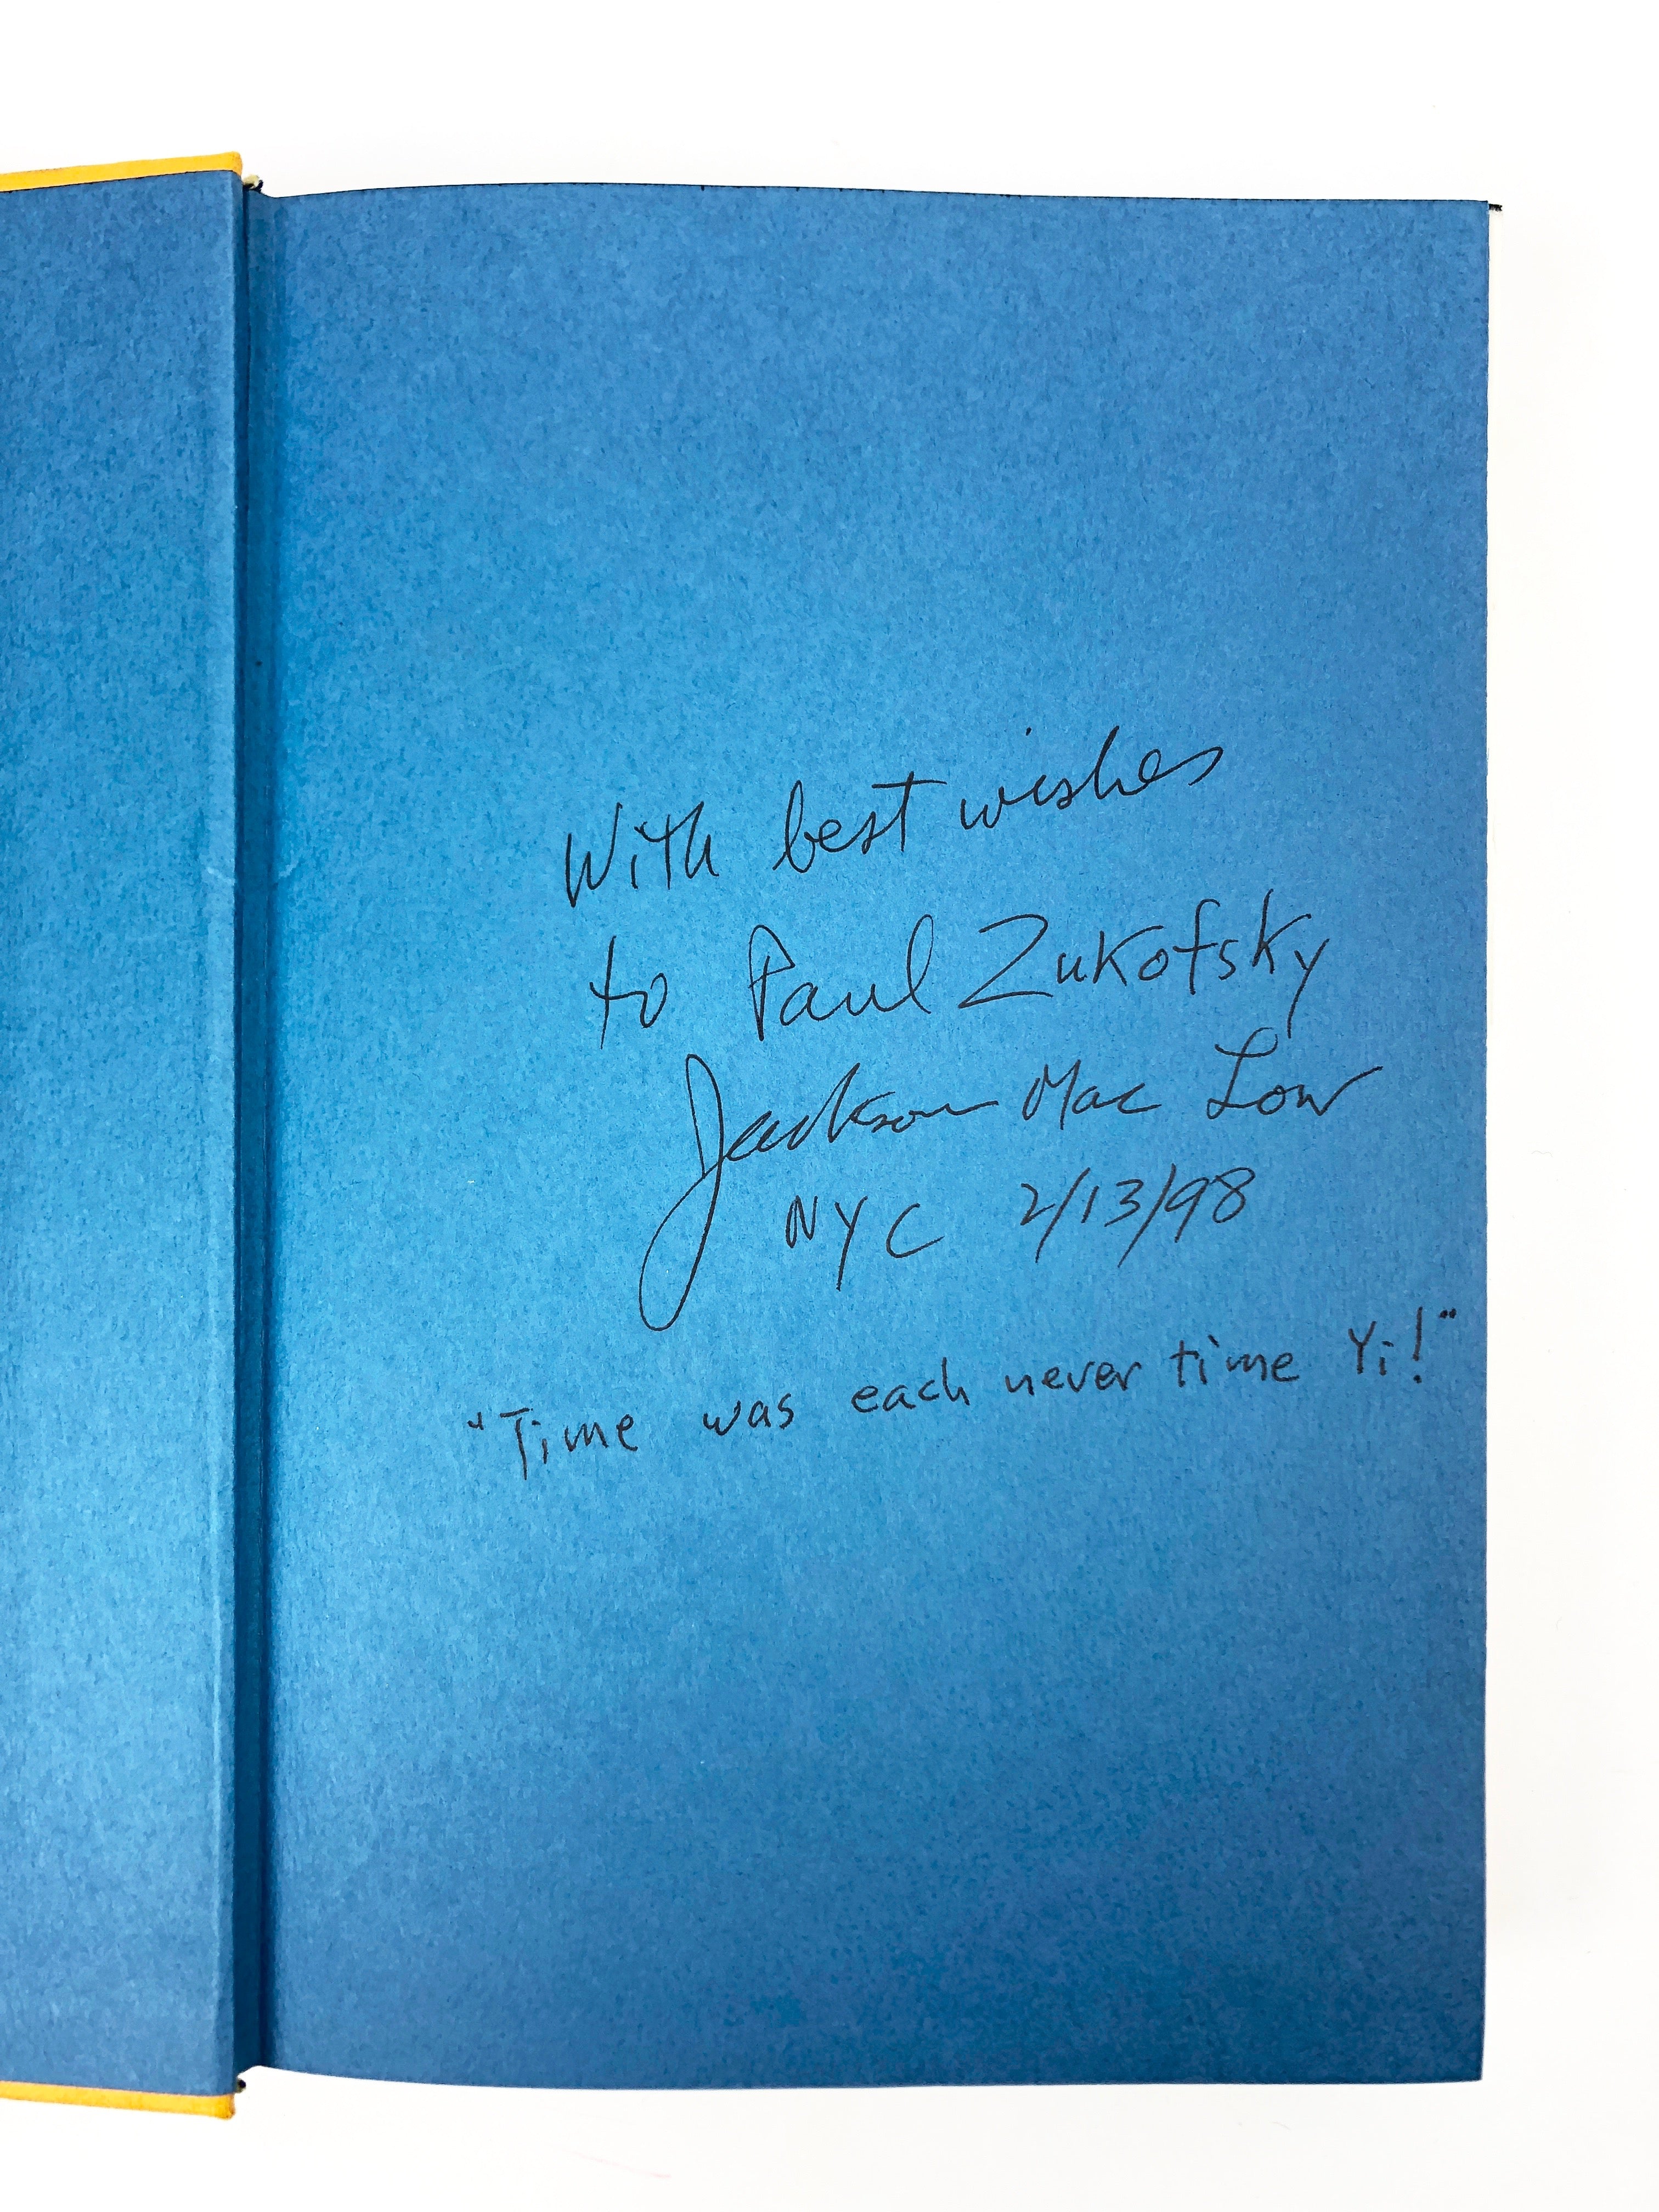 With best wishes
to Paul Zukofsky
Jackson Mac Low
NYC 2/13/98
"Time was each never time Yi!"